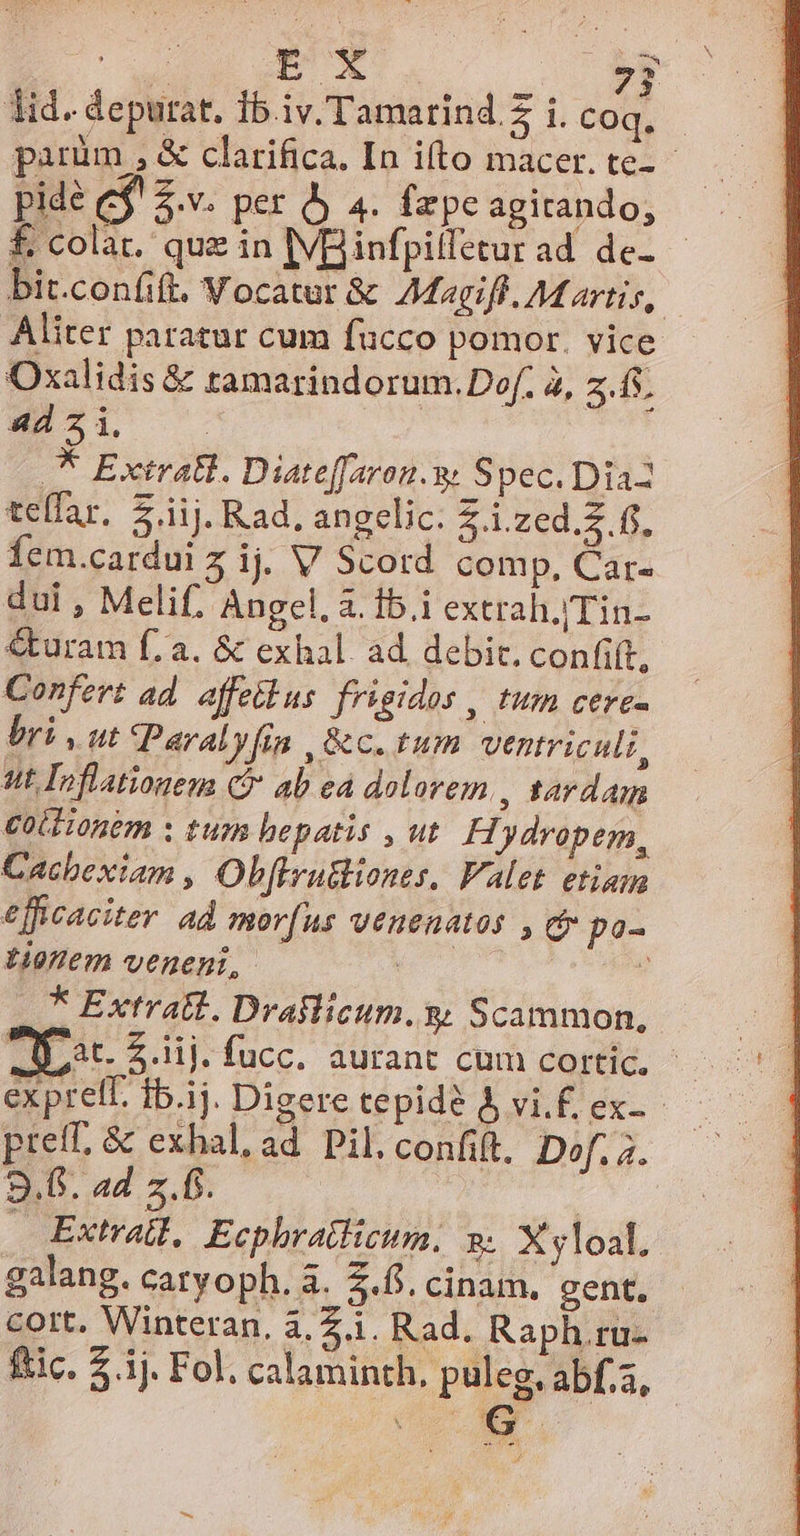 E X 73
lid. depurat. ℔.iv. Tamarind. ℥ i. coq.
parùm , & clarifica. In iſto macer. te-
pidè ♂ ℥.v. per 4. ſæpe agitando,
f. colat. quæ in MB inſpiſſetur ad de-
bit.conſiſt. Vocatur & Magiſt. Martis,
Aliter paratur cum ſucco pomor. vice
Oxalidis & tamarindorum. Doſ. à, ʒ.ß.
ad ʒ i.
* Extract. Diateſſaron. ℞. Spec. Dia-
teſſar. ℥.iij. Rad. angelic. ℥.i. zed. ℥.ß.
ſem.cardui ʒ ij. V Scord comp. Car-
dui , Meliſ. Angel. ā. ℔.i extrah. Tin-
cturam ſ. a. & exhal. ad debit. conſiſt.
Confert ad affectus frigidos , tum cere-
bri , ut Paralyſin , &c. tum ventriculi,
ut Inflationem & ab ea dolorem , tardam
coctionem : tum hepatis , ut Hydropem,
Cachexiam , Obſtructiones. Valet etiam
efficaciter ad morſus venenatos , & po-
tionem veneni.
* Extract. Draſticum. ℞. Scammon.
at. ℥.iij. ſucc. aurant cum cortic.
expreſſ. ℔.ij. Digere tepidè vi. f. ex-
preſſ. & exhal. ad Pil. conſiſt. Doſ. à.
℈.ß. ad ʒ.ß.
Extract. Ecphracticum. ℞. Xyloal.
galang. caryoph. ā. ℥.ß. cinam. gent.
cort. Winteran. ā. ℥.i. Rad. Raph. ru-
ſtic. ℥.ij. Fol. calaminth. puleg. abſ. ā,
G